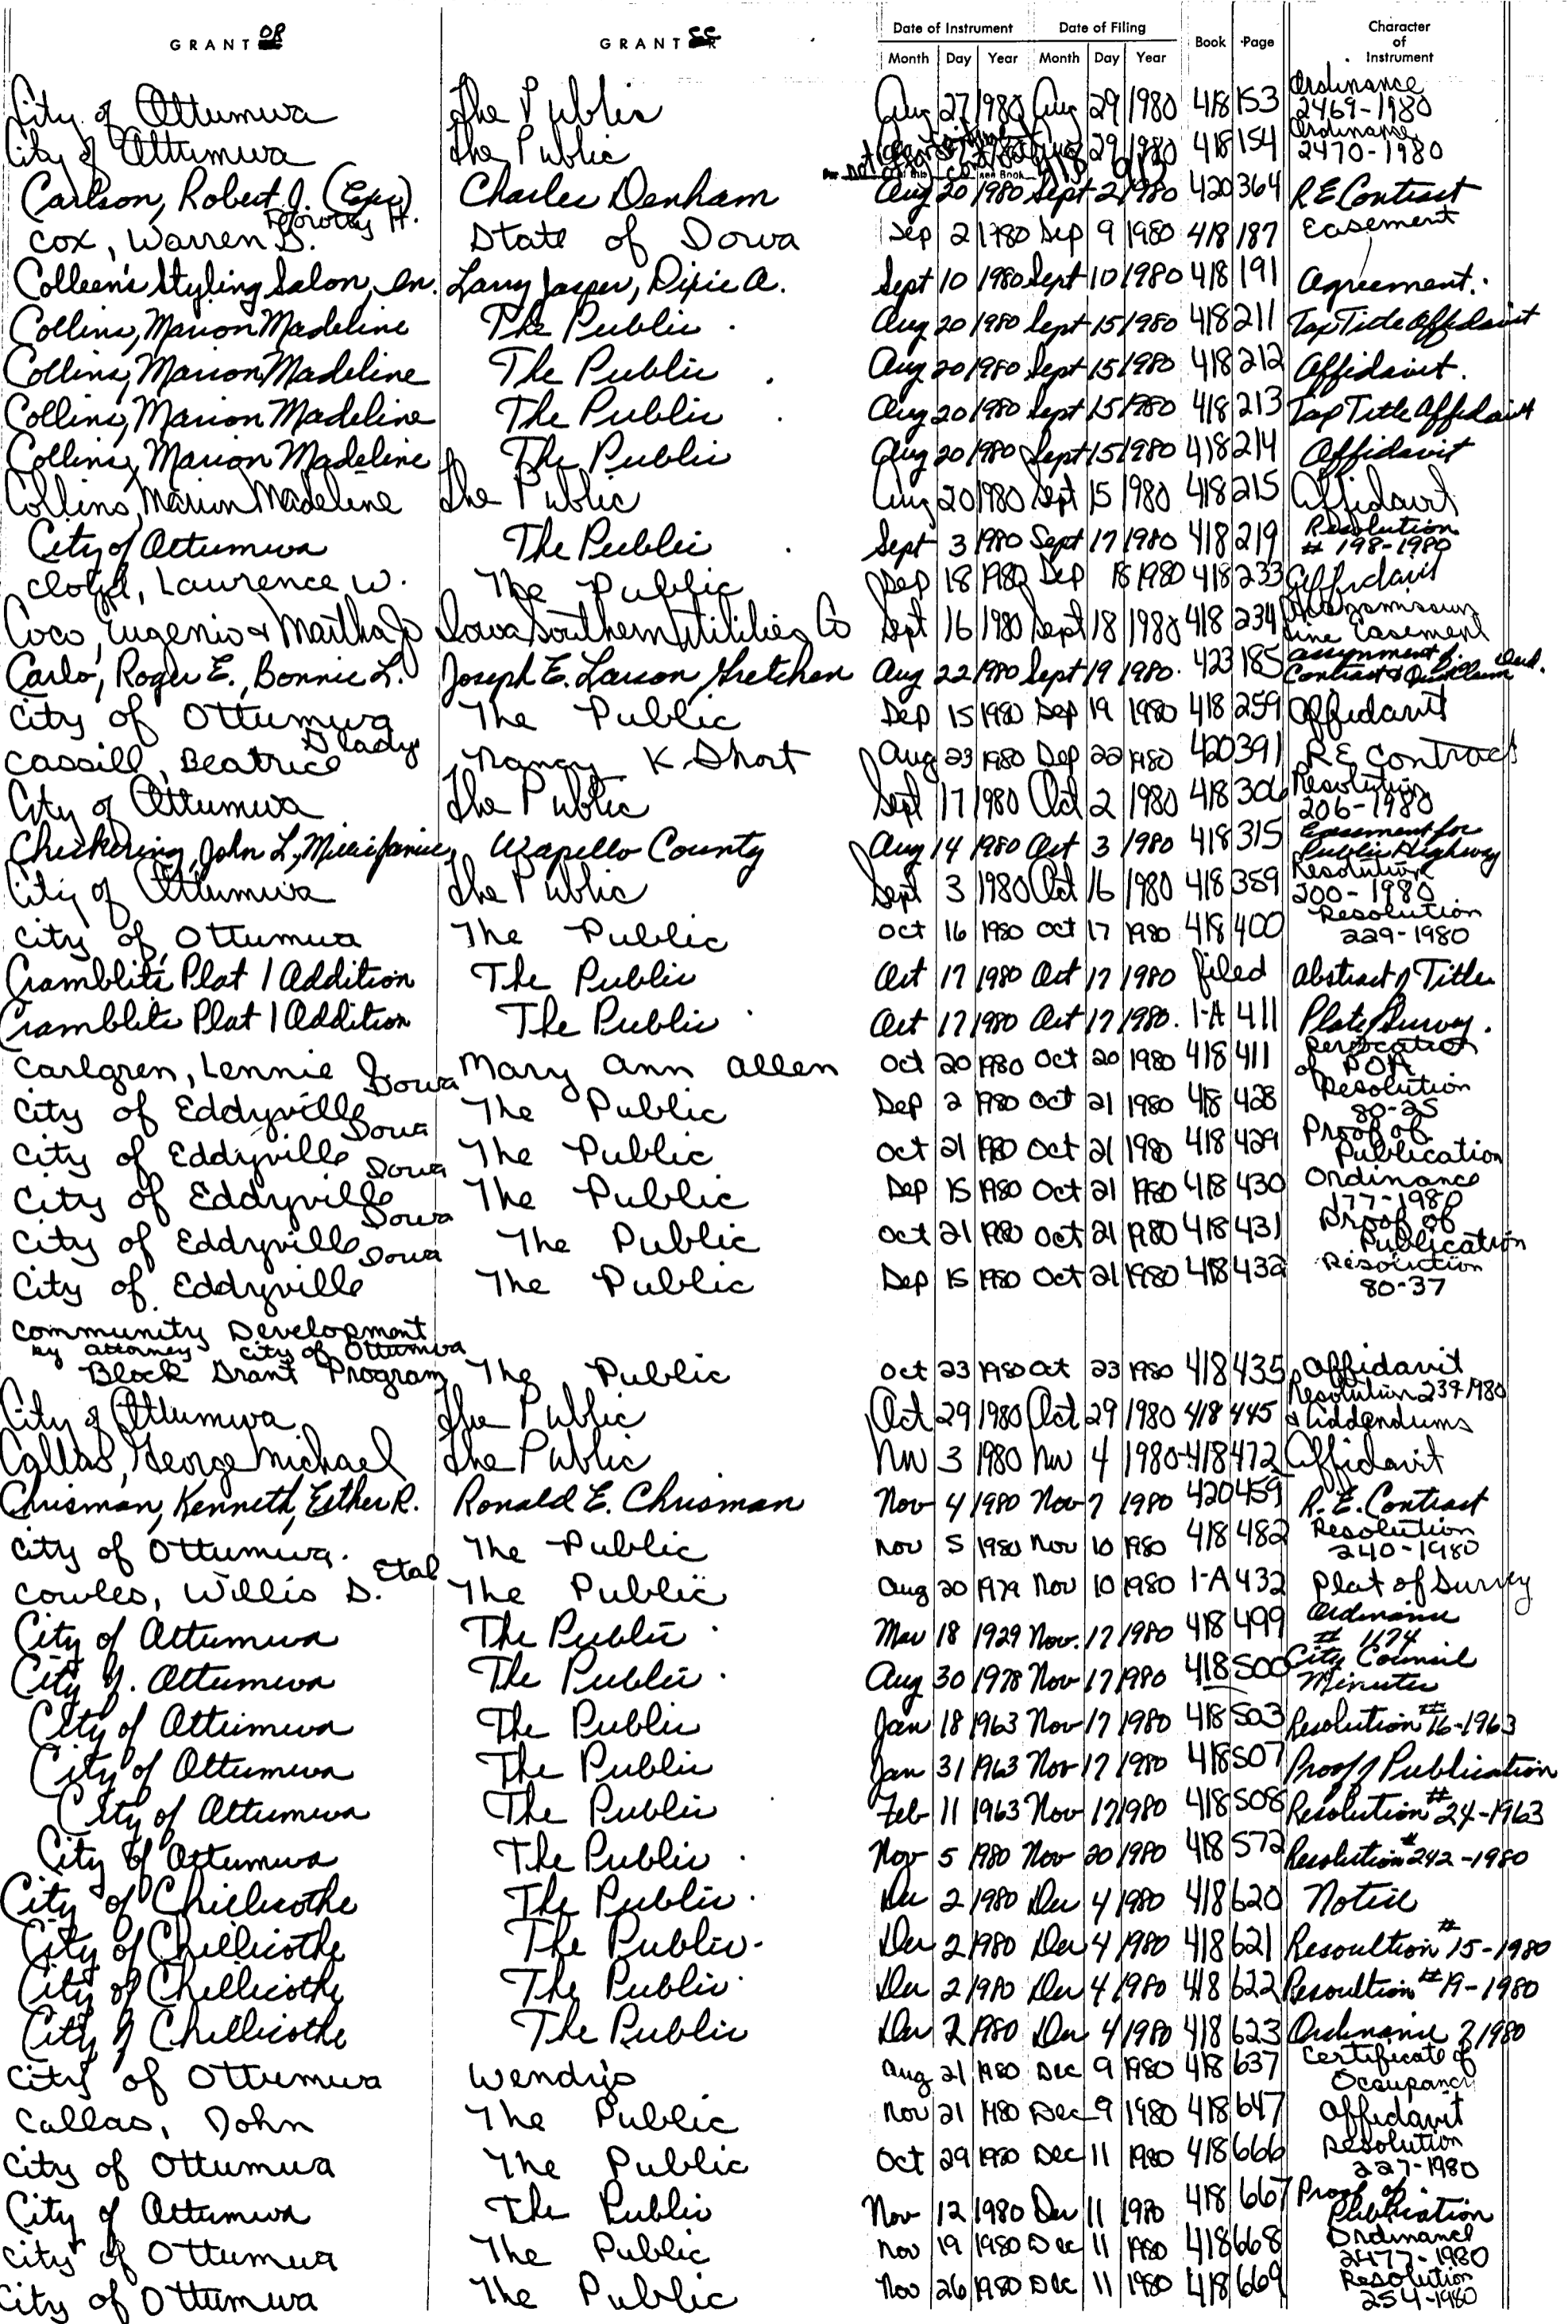 GRANTOR GRANTEE Date of Instrument Date of Filing Book Page Character of Instrument
Month Day Year Month Day Year
City of Ottumwa The Public Aug 27 1980 Aug 29 1980 418 153 Ordinance 2469-1980
City of Ottumwa The Public 29 1980 418 154 Ordinance 2470-1980
see Book
Carlson, Robert J. Charles Denham Aug 20 1980 Sept 2 1980 420 364 R E Contract
Cox, Warren D. Dorothy H. State of Iowa Sep 2 1980 Sep 9 1980 418 187 Easement
Colleen's Styling Salon, In. Larry Jasper, Dixie A. Sept 10 1980 Sept 10 1980 418 191 Agreement.
Collins, Marion Madeline The Public Aug 20 1980 Sept 15 1980 418 211 Tax Title Affidavit
Collins, Marion Madeline The Public Aug 20 1980 Sept 15 1980 418 212 Affidavit.
Collins, Marion Madeline The Public Aug 20 1980 Sept 15 1980 418 213 Tax Title Affidavit
Collins, Marion Madeline The Public Aug 20 1980 Sept 15 1980 418 214 Affidavit
Collins, Marion Madeline The Public Aug 20 1980 Sept 15 1980 418 215 Affidavit
City of Ottumwa The Public Sept 3 1980 Sept 17 1980 418 219 Resolution # 198-1980
Laurence W. The Public Sep 18 1980 Sep 18 1980 418 233 Affidavit
Coco, Eugenio & Martha Jo Iowa Southern Utilities Co Sept 16 1980 Sept 18 1980 418 234 Transmission Line Easement
Carlo, Roger E., Bonnie L. Joseph E. Larson, Gretchen Aug 22 1980 Sept 19 1980 423 185 Assignment of Contract & Quit Claim Deed.
City of Ottumwa The Public Sep 15 1980 Sep 19 1980 418 259 Affidavit
Cassill, Beatrice Gladys Nancy K Short Aug 23 1980 Sep 22 1980 420 391 R E Contract
City of Ottumwa The Public Sept 17 1980 Oct 2 1980 418 306 Resolution 206-1980
Chickering, John L., Millie Janice Wapello County Aug 14 1980 Oct 3 1980 418 315 Easement for Public Highway
City of Ottumwa The Public Sept 3 1980 Oct 16 1980 418 389 Resolution 200-1980
City of Ottumwa The Public Oct 16 1980 Oct 17 1980 418 400 Resolution 229-1980
Cramblits Plat 1 Addition The Public Oct 17 1980 Oct 17 1980 filed Abstract of Title
Cramblits Plat 1 Addition The Public Oct 17 1980 Oct 17 1980. 1-A 411 Plat of Survey.
Carlgren, Lennie J. Mary Ann Allen Oct 20 1980 Oct 20 1980 418 411 Revocation of POA
City of Eddyville Iowa The Public Sep 2 1980 Oct 21 1980 418 428 Resolution 80-25
City of Eddyville Iowa The Public Oct 21 1980 Oct 21 1980 418 429 Proof of Publication
City of Eddyville Iowa The Public Sep 15 1980 Oct 21 1980 418 430 Ordinance 177-1980
City of Eddyville Iowa The Public Oct 21 1980 Oct 21 1980 418 431 Proof of Publication
City of Eddyville Iowa The Public Sep 15 1980 Oct 21 1980 418 432 Resolution 80-37
Community Development
by attorney City of Ottumwa
Block Grant Program The Public Oct 23 1980 Oct 23 1980 418 435 Affidavit
City of Ottumwa The Public Oct 29 1980 Oct 29 1980 418 445 Resolution 239 1980 & Addendums
Callas, George Michael The Public Nov 3 1980 Nov 4 1980 418 472 Affidavit
Chrisman, Kenneth, Esther R. Ronald E. Chrisman Nov 4 1980 Nov 7 1980 420 459 R. E. Contract
City of Ottumwa. The Public Nov 5 1980 Nov 10 1980 418 482 Resolution 240-1980
Cowles, Willis D. Etal The Public Aug 20 1979 Nov 10 1980 1-A 432 Plat of Survey
City of Ottumwa The Public Mar 18 1929 Nov. 17 1980 418 499 Ordinance # 1174
City of Ottumwa The Public Aug 30 1978 Nov 17 1980 418 500 City Council Minutes
City of Ottumwa The Public Jan 18 1963 Nov 17 1980 418 503 Resolution #16-1963
City of Ottumwa The Public Jan 31 1963 Nov 17 1980 418 507 Proof of Publication
City of Ottumwa The Public Feb 11 1963 Nov 17 1980 418 508 Resolution #24-1963
City of Ottumwa The Public Nov 5 1980 Nov 20 1980 418 572 Resolution #242-1980
City of Chillicothe The Public Dec 2 1980 Dec 4 1980 418 620 Notice
City of Chillicothe The Public Dec 2 1980 Dec 4 1980 418 621 Resoultion #15-1980
City of Chillicothe The Public Dec 2 1980 Dec 4 1980 418 622 Resoultion #19-1980
City of Chillicothe The Public Dec 2 1980 Dec 4 1980 418 623 Ordinance 2 1980
City of Ottumwa Wendy's Aug 21 1980 Dec 9 1980 418 637 Certificate of Occupancy
Callas, John The Public Nov 21 1980 Dec 9 1980 418 647 Affidavit
City of Ottumwa The Public Oct 29 1980 Dec 11 1980 418 666 Resolution 227-1980
City of Ottumwa The Public Nov 12 1980 Dec 11 1980 418 667 Proof of Publication
City of Ottumwa The Public Nov 19 1980 Dec 11 1980 418 668 Ordinance 2477-1980
City of Ottumwa The Public Nov 26 1980 Dec 11 1980 418 669 Resolution 254-1980